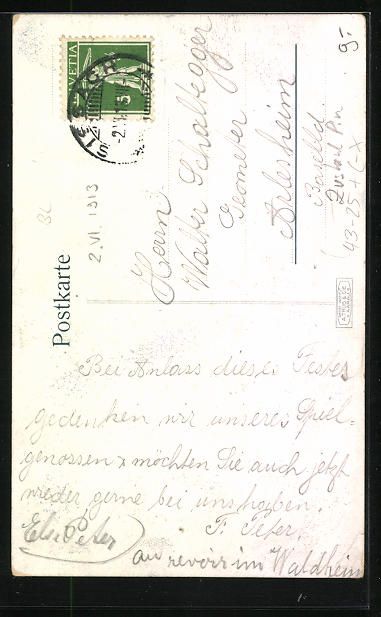 HELVETIA
2.VI.1913
Postkarte
Herrn
Walter Schaltegger
Geometer
Arlesheim
Baselld
9.-
Bei Anlass dieses Festes
gedenken wir unseres Spiel-
genossen & möchten Sie auch jetzt
wieder gerne bei uns haben.
F. Peter.
Else Peter
au revoir im Waldheim